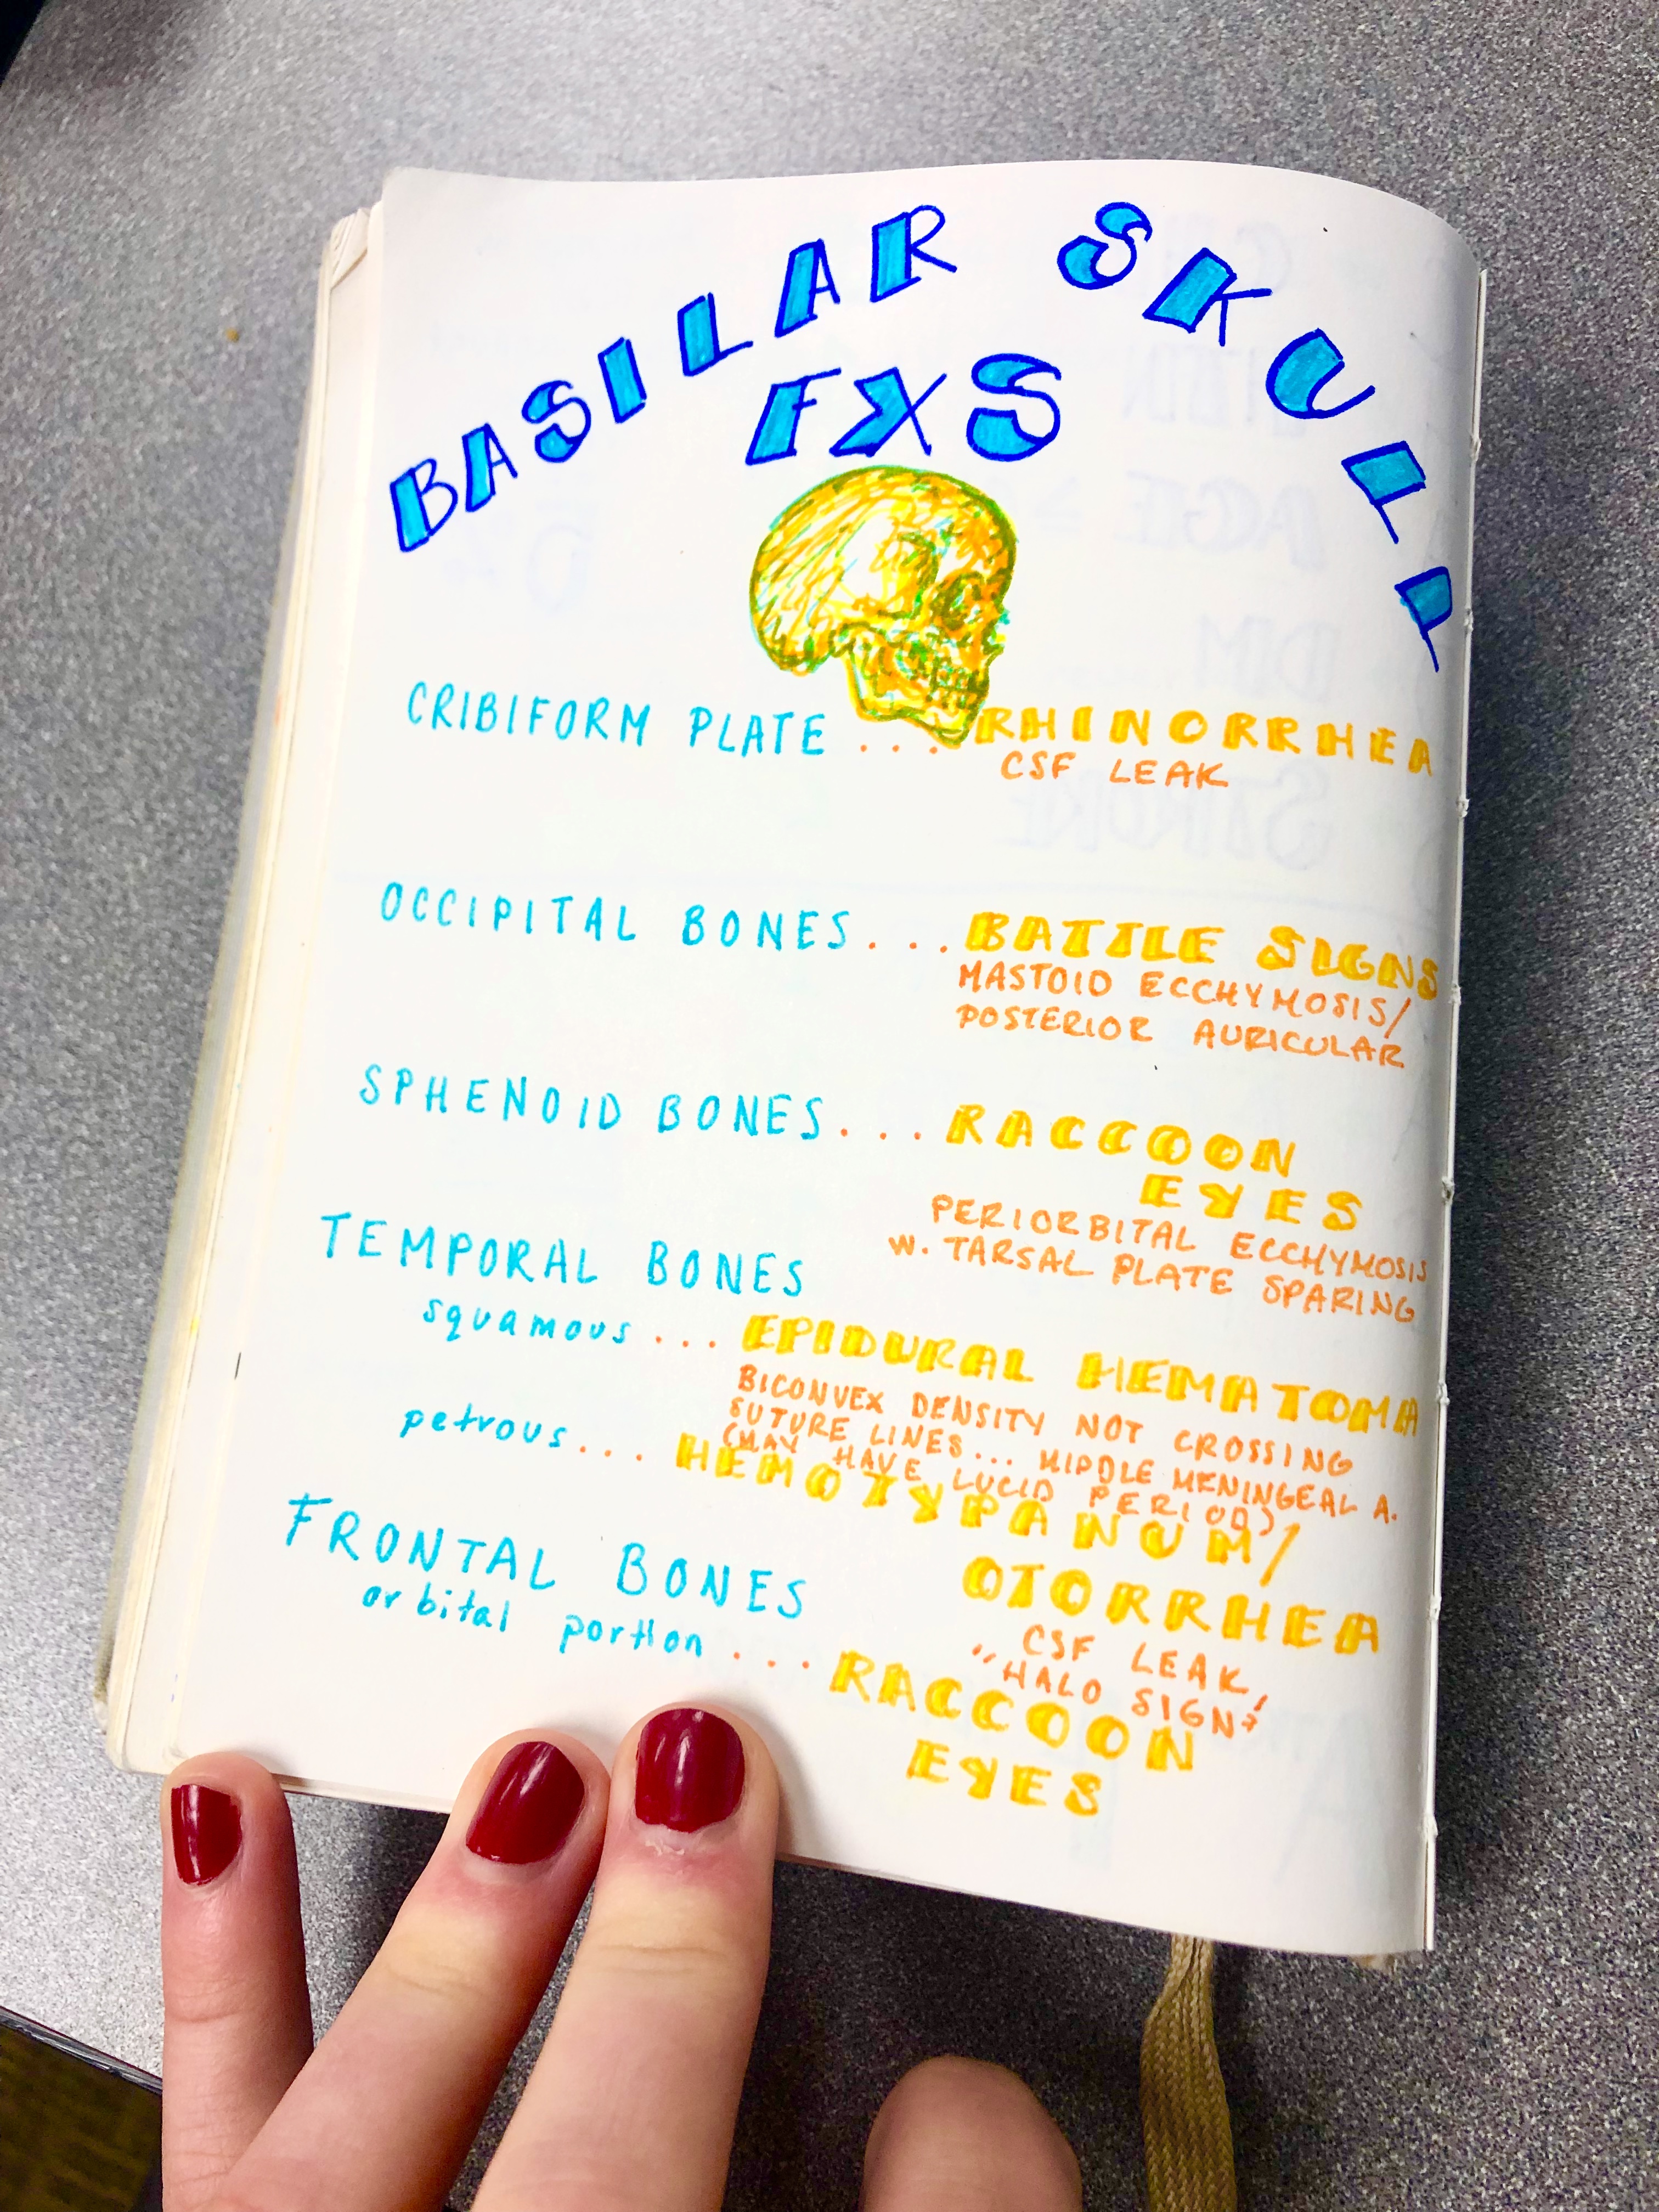 BASILAR SKULL
FXS
CRIBIFORM PLATE ... RHINORRHEA
CSF LEAK
OCCIPITAL BONES... BATTLE SIGNS
MASTOID ECCHYMOSIS/
POSTERIOR AURICULAR
SPHENOID BONES... RACCOON
EYES
PERIORBITAL ECCHYMOSIS
W. TARSAL PLATE SPARING
TEMPORAL BONES
squamous ... EPIDURAL HEMATOMA
BICONVEX DENSITY NOT CROSSING
SUTURE LINES... MIDDLE MENINGEAL A.
(MAY HAVE LUCID PERIOD)
petrous... HEMOTYPANUM/
OTORRHEA
CSF LEAK,
"HALO SIGN"
FRONTAL BONES
orbital portion ... RACCOON
EYES